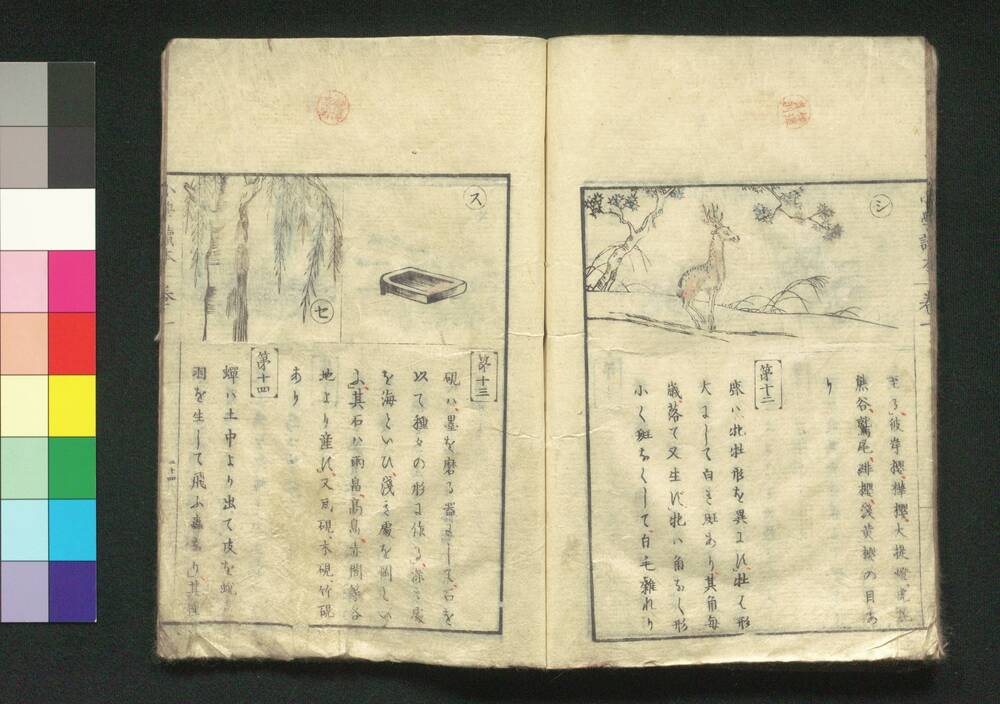 シ
至る、彼岸櫻、樺櫻、大提燈、虎尾
熊谷、鷲尾、緋櫻、淺黄櫻の目あ
り
第十二
鹿ハ、牝牡形を異にす、牡ハ形
大にして白き斑あり、其角毎
歳落て又生ず、牝ハ角なく形
小く斑なくして、白毛雜れり
ス
第十三
硯ハ、墨を磨る器にして、石を
以て種々の形に作る、深き處
を海といひ、淺き處を岡とい
ふ、其石ハ雨畠、高島、赤間等各
地より産す、又瓦硯、木硯、竹硯
あり
セ
第十四
蟬ハ土中より出て皮を蛻
羽を生して飛ふ蟲なり、其種
二十四